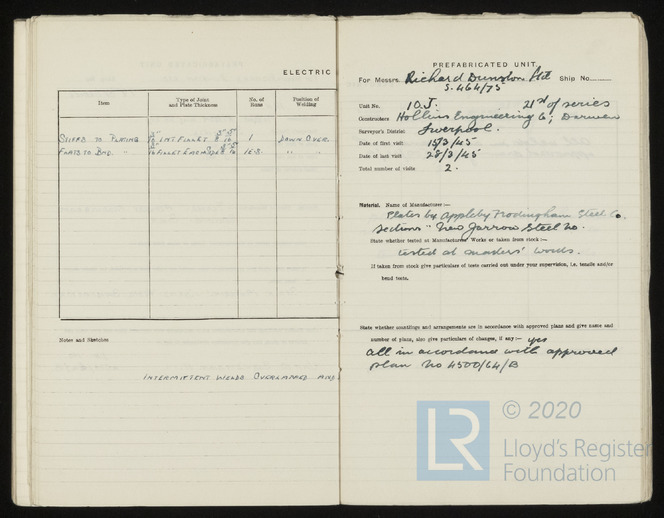 ELECTRIC
Item
Type of Joint and Plate Thickness
No. of Items
Position of Welding
STIFFS TO PLATING INT FILLET 1 DOWN OVER.
FLATS TO BHD. FILLET EACH SIDE " "
Notes and Sketches
INTERMITTENT WELDS OVERLAPPED AND
PREFABRICATED UNIT
For Messrs. Richard Dunston Ltd Ship No.
S.464/75
Unit No. 10.J. 21st of series
Constructors Hollins Engineering Co; Darwen
Surveyor's District Liverpool.
Date of first visit 15/3/45
Date of last visit 28/3/45
Total number of visits 2.
Material. Name of Manufacturer :—
Plates by Appleby Frodingham Steel Co.
Sections " New Jarrow Steel Co.
State whether tested at Manufacturers' Works or taken from stock :—
tested at makers' works.
If taken from stock give particulars of tests carried out under your supervision, i.e. tensile and/or
bend tests.
State whether scantlings and arrangements are in accordance with approved plans and give name and
number of plans, also give particulars of changes, if any :— yes
all in accordance with approved
plan No 4500/64/B
LR
© 2020
Lloyd's Register
Foundation